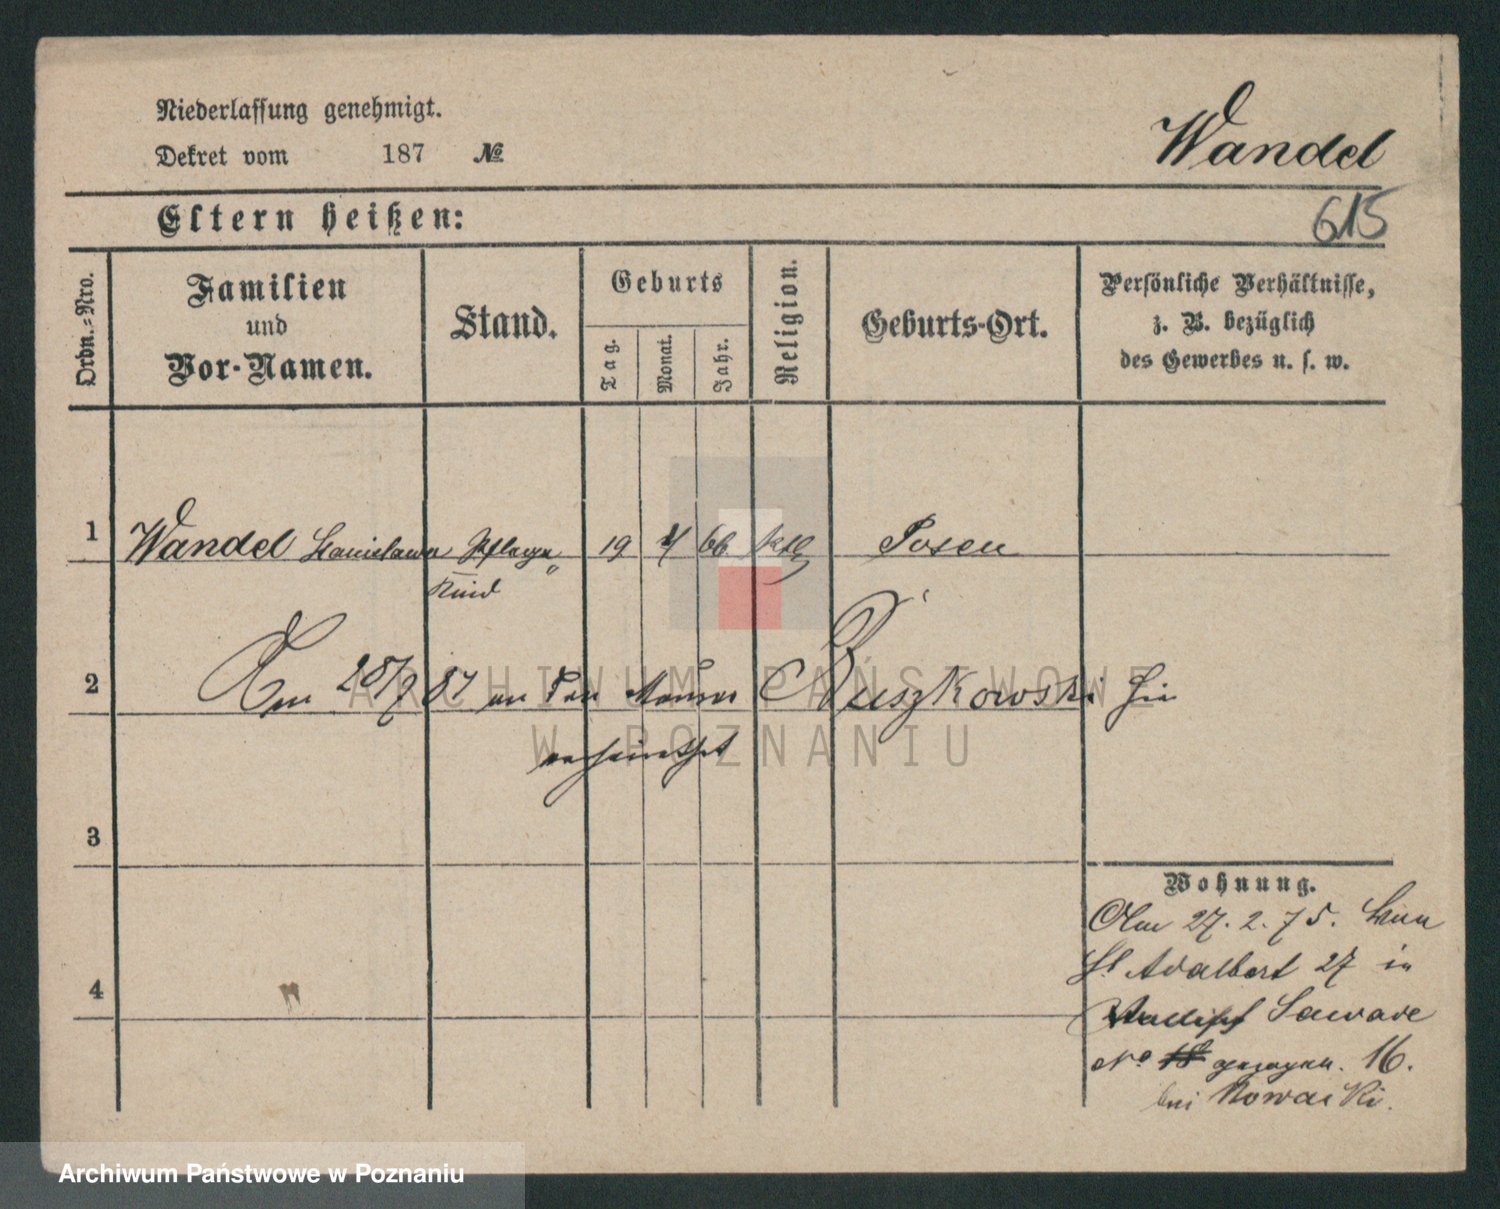 Niederlassung genehmigt.
Dekret vom 187 №
Wandel
615
Eltern heißen:
Ordn.-Nro.
Familien
und
Vor-Namen.
Stand.
Geburts
Tag.
Monat.
Jahr.
Religion.
Geburts-Ort.
Persönliche Verhältnisse,
z. B. bezüglich
des Gewerbes u. s. w.
1 Wandel Stanislawa Pflege 19 4 66 kth Posen
Kind
2 Am 28/9 87 an den Maurer Ruszkowski hier
verheirathet
3
Wohnung.
Am 27. 2. 75. von
St Adalbert 27 in
4
Sawade
No 18 gezogen. 16.
bei Nowacki.
ARCHIWUM PAŃSTWOWE
W POZNANIU
Archiwum Państwowe w Poznaniu